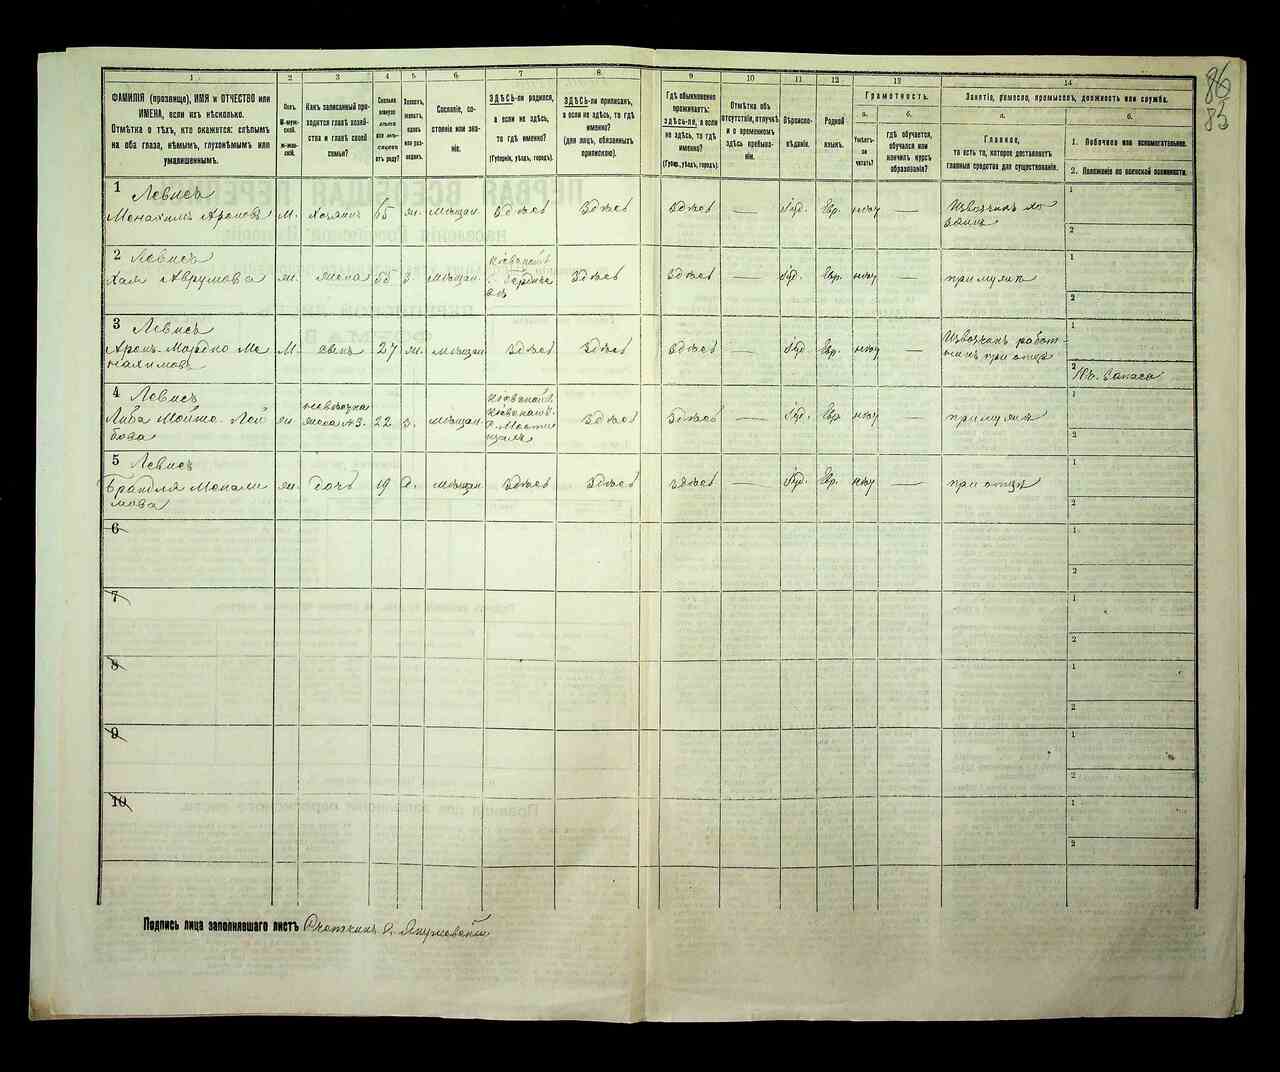 86
85
1 2 3 4 5 6 7 8 9 10 11 12 13 14
ФАМИЛІЯ (прозвище), ИМЯ и ОТЧЕСТВО или
ИМЕНА, если ихъ нѣсколько.
Отмѣтка о тѣхъ, кто окажется: слѣпымъ
на оба глаза, нѣмымъ, глухонѣмымъ или
умалишеннымъ.
Полъ.
М-муж-
ской.
ж-жен-
скій.
Какъ записанный при-
ходится главѣ хозяй-
ства и главѣ своей
семьи?
Сколько
минуло
лѣтъ
или мѣ-
сяцевъ
отъ роду?
Холостъ,
женатъ,
вдовъ
или раз-
веденъ.
Сословіе, со-
стояніе или зва-
ніе.
ЗДѢСЬ-ли родился,
а если не здѣсь,
то гдѣ именно?
(Губернія, уѣздъ, городъ).
ЗДѢСЬ-ли приписанъ,
а если не здѣсь, то гдѣ
именно?
(для лицъ, обязанныхъ
припискою).
Гдѣ обыкновенно
проживаетъ:
здѣсь-ли, а если
не здѣсь, то гдѣ
именно?
(Губерн., уѣздъ, городъ).
Отмѣтка объ
отсутствіи, отлучкѣ
и о временномъ
здѣсь пребыва-
ніи.
Вѣроиспо-
вѣданіе.
Родной
языкъ.
Грамотность.
а.
б.
Умѣетъ-
ли
читать?
гдѣ обучается,
обучался или
кончилъ курсъ
образованія?
Занятіе, ремесло, промыселъ, должность или служба.
а.
б.
Главное,
то есть то, которое доставляетъ
главныя средства для существованія.
1. Побочное или вспомогательное.
2. Положеніе по воинской повинности.
1 Левисъ
Менахимъ Ароновъ М. Хозяинъ 65 ж. мѣщан. здѣсь здѣсь здѣсь — Іуд. Евр. нѣт —
Извозчикъ хо
зяинъ
1
2
2 Левисъ
Хая Аврумова ж. жена 55 з. мѣщан.
г. Бердиче
въ
здѣсь здѣсь — Іуд. Евр. нѣт при мужѣ
1
2
3 Левисъ
Аронъ-Мордко Ме
нахимовъ М. сынъ 27 ж. мѣщан. здѣсь здѣсь здѣсь — Іуд. Евр. нѣт —
Извозчикъ работ-
никъ при отцѣ
1
2
4 Левисъ
Либа Мойше-Лей
бова ж.
невѣстка
жена №3. 22 з. мѣщан.
здѣсь здѣсь — Іуд. Евр. нѣт при мужѣ
1
2
5 Левисъ
Брандля Менахи
мова ж. дочь 19 д. мѣщан. здѣсь здѣсь здѣсь — Іуд. Евр. нѣт — при отцѣ
1
2
6
1
2
7
1
2
8
1
2
9
1
2
10
1
2
Подпись лица заполнявшаго листъ Счетчикъ